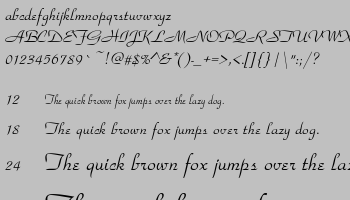 abcdefghijklmnopqrstuvwxyz
ABCDEFGHIJKLMNOPQRSTUVWX
0123456789`~!@#$%^&*()-_+=>,<.[]{}|\":;/?
12 The quick brown fox jumps over the lazy dog.
18 The quick brown fox jumps over the lazy dog.
24 The quick brown fox jumps over the la